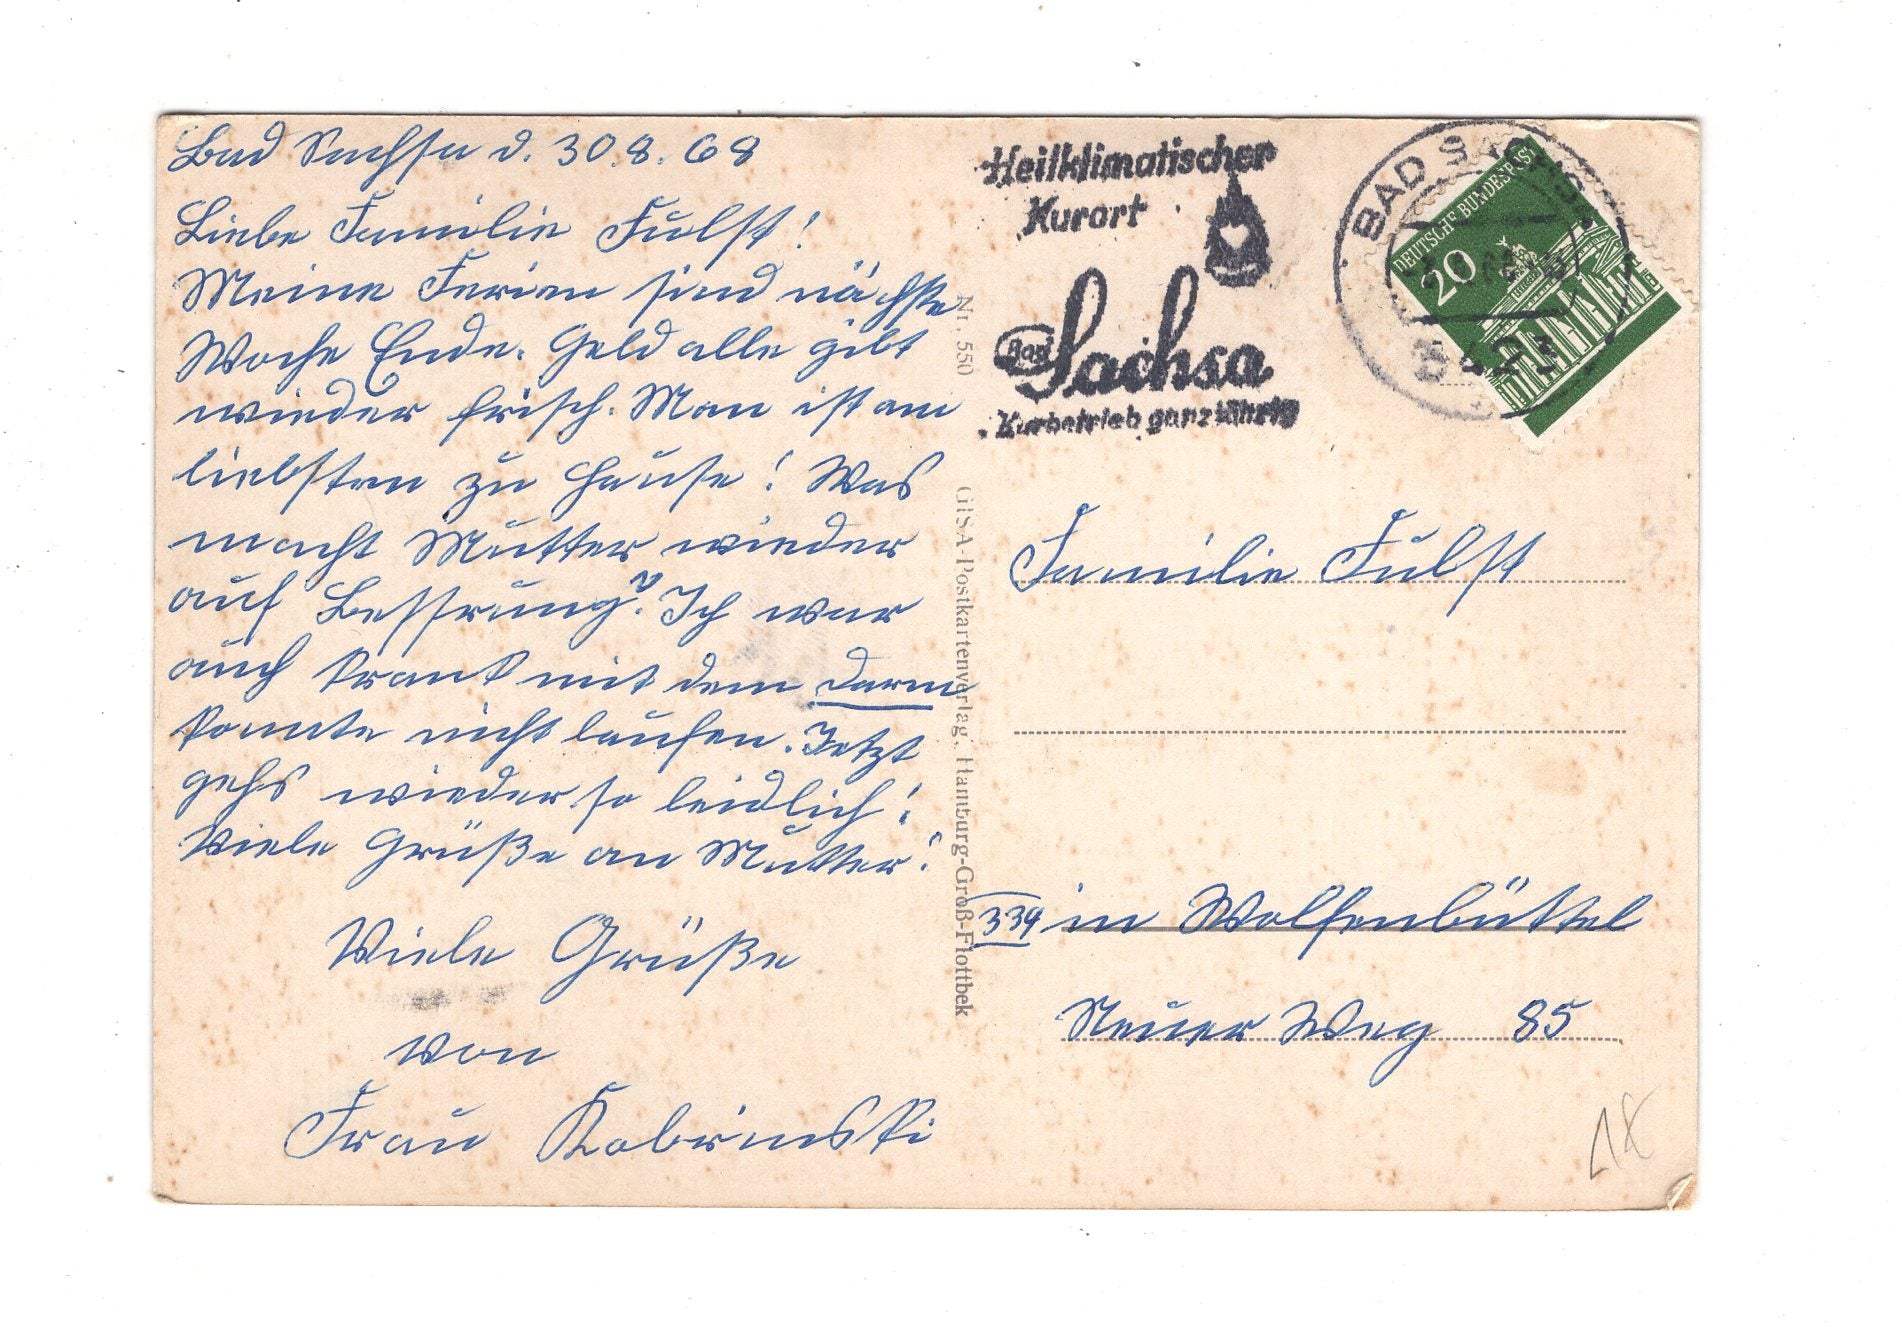 Bad Sachsa d. 30.8.68
Liebe Familie Fulst!
Meine Ferien sind nächste
Woche Ende. Geld alle gibt
wieder frisch. Man ist am
liebsten zu Hause! Was
macht Mutter wieder
auf Bessrung? Ich war
auch krank mit dem Darm
konnte nicht laufen. Jetzt
gehs wieder so leidlich!
Viele Grüße an Mutter!
Viele Grüße
von
Frau Kobrinski
Nr. 550 GISA-Postkartenverlag, Hamburg-Groß-Flottbek
Heilklimatischer
Kurort
Bad Sachsa
Kurbetrieb ganzjährig
BAD SACHSA
3423
DEUTSCHE BUNDESPOST
20
Familie Fulst
334 in Wolfenbüttel
Neuer Weg 85
18